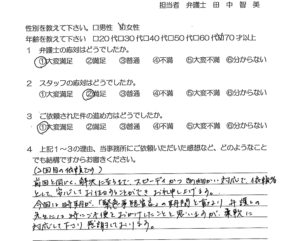 担当者 弁護士 田中智美
性別を教えて下さい。 □男性 ☑女性
年齢を教えて下さい □20代□30代□40代□50代□60代☑70才以上
1 弁護士の応対はどうでしたか。
①大変満足 ②満足 ③普通 ④不満 ⑤大変不満 ⑥分からない
2 スタッフの応対はどうでしたか。
①大変満足 ②満足 ③普通 ④不満 ⑤大変不満 ⑥分からない
3 ご依頼された件の進め方はどうでしたか。
①大変満足 ②満足 ③普通 ④不満 ⑤大変不満 ⑥分からない
4 上記1~3の理由、当事務所にご依頼いただいた感想など、どのようなこと
でも結構ですからお書きください。
(2回目の依頼です)
前回と同じく、解決に至るまで、スピーディかつ 対応で、依頼者
として、安心しておまかせすることができ お礼申し上げます。
今回は時期が、「緊急事態宣言」の期間と重なり 弁護士の
先生には 時々ご不便をおかけしたことと思いますが、柔軟に
対応して下さり 感謝しております。